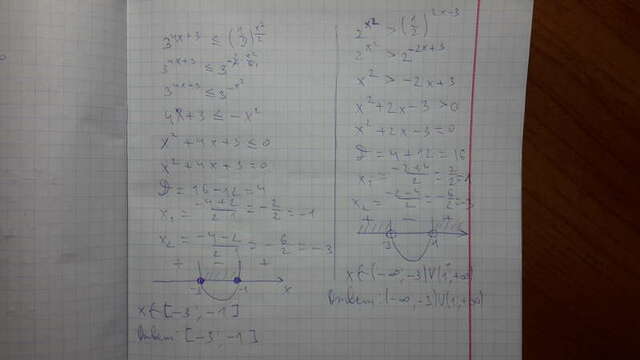 3^{4x+3} ≤ (1/3)^{x²/2}
3^{4x+3} ≤ 3^{-2·x²/2}
3^{4x+3} ≤ 3^{-x²}
4x+3 ≤ -x²
x²+4x+3 ≤ 0
x²+4x+3 = 0
D = 16-12 = 4
x₁ = (-4+2)/(2·1) = -2/2 = -1
x₂ = (-4-2)/2 = -6/2 = -3
+ - +
-3 -1 x
x ∈ [-3; -1]
Ответ: [-3; -1]
2^{x²} > (1/2)^{2x-3}
2^{x²} > 2^{-2x+3}
x² > -2x+3
x²+2x-3 > 0
x²+2x-3 = 0
D = 4+12 = 16
x₁ = (-2+4)/2 = 2/2 = 1
x₂ = (-2-4)/2 = -6/2 = -3
+ - +
-3 1
x ∈ (-∞; -3)∪(1; +∞)
Ответ: (-∞; -3)∪(1; +∞)